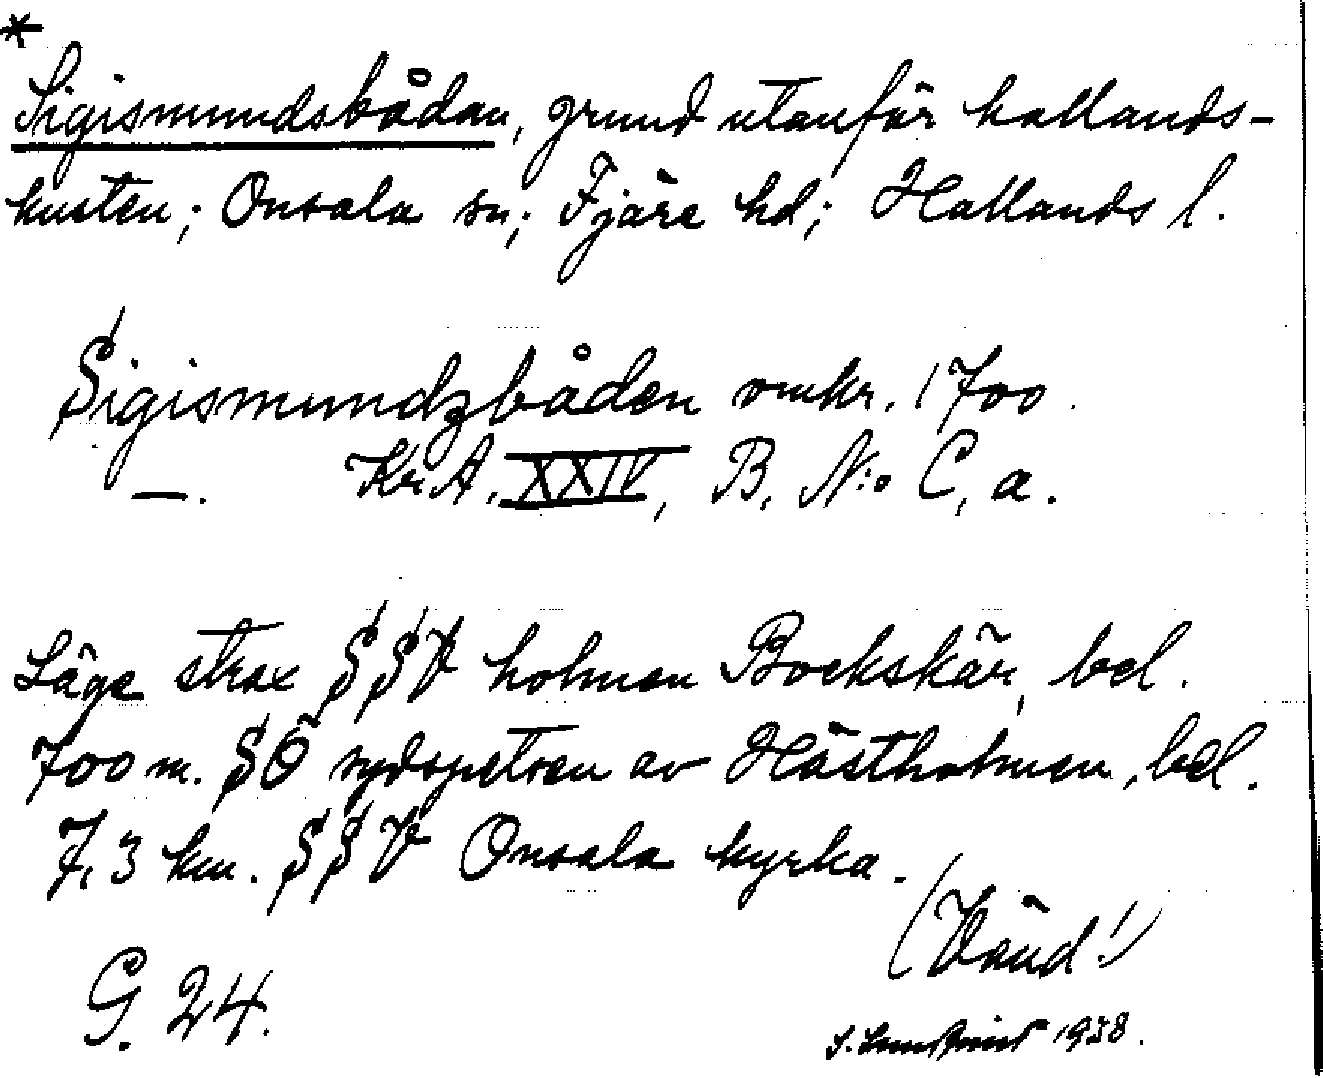 *
Sigismundsbådan, grund utanför hallands-
kusten; Onsala sn; Fjäre hd; Hallands l.
Sigismundzbåden omkr. 1700.
—. KrA. XXIV, B. N:o C, a.
Läge strax SSV holmen Bockskär, bel.
700 m. SÖ sydspetsen av Hästholmen, bel.
7,3 km. SSV Onsala kyrka.
(Vänd!)
G. 24.
1938.